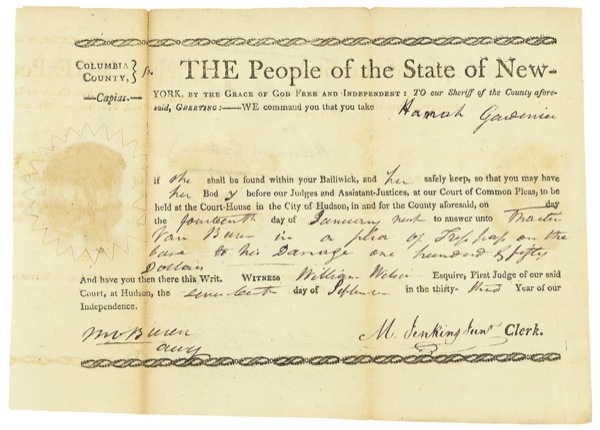 COLUMBIA COUNTY, } ss. THE People of the State of New-
—Capias.— YORK, BY THE GRACE OF GOD FREE AND INDEPENDENT: TO our Sheriff of the County afore-
said, GREETING:——WE command you that you take Hannah Gardenier
if she shall be found within your Bailiwick, and her safely keep, so that you may have
her Body before our Judges and Assistant-Justices, at our Court of Common Pleas, to be
held at the Court-House in the City of Hudson, in and for the County aforesaid, on day
the fourteenth day of January next to answer unto Martin
Van Buren in a plea of Trespass on the
case to his Damage one hundred & fifty
Dollars
And have you then there this Writ. WITNESS William Esquire, First Judge of our said
Court, at Hudson, the day of in the thirty- third Year of our
Independence.
M V Buren
atty
M. Jenkins Junr Clerk.